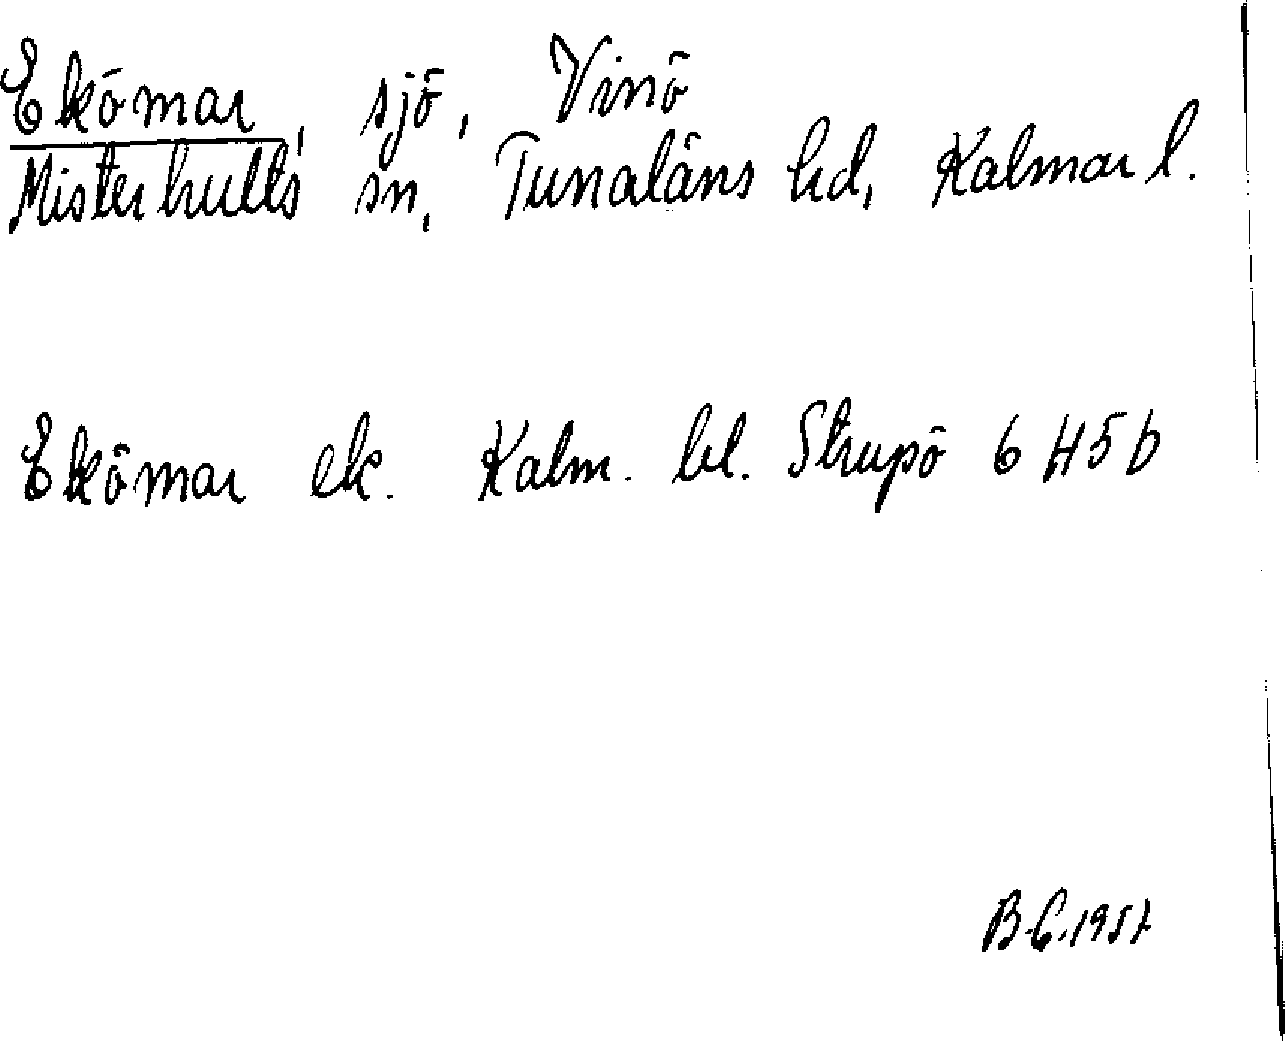 Ekömar, sjö, Vinö
Misterhults sn, Tunaläns hd, Kalmar l.
Ekömar ek. Kalm. bl. Strupö 6 H5b
B.C. 1957